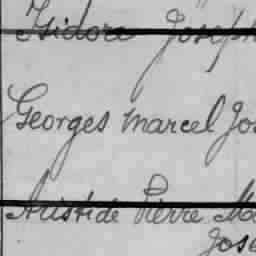 Isidore Joseph
Georges Marcel Jos
Aristide Pierre Ma
Jose